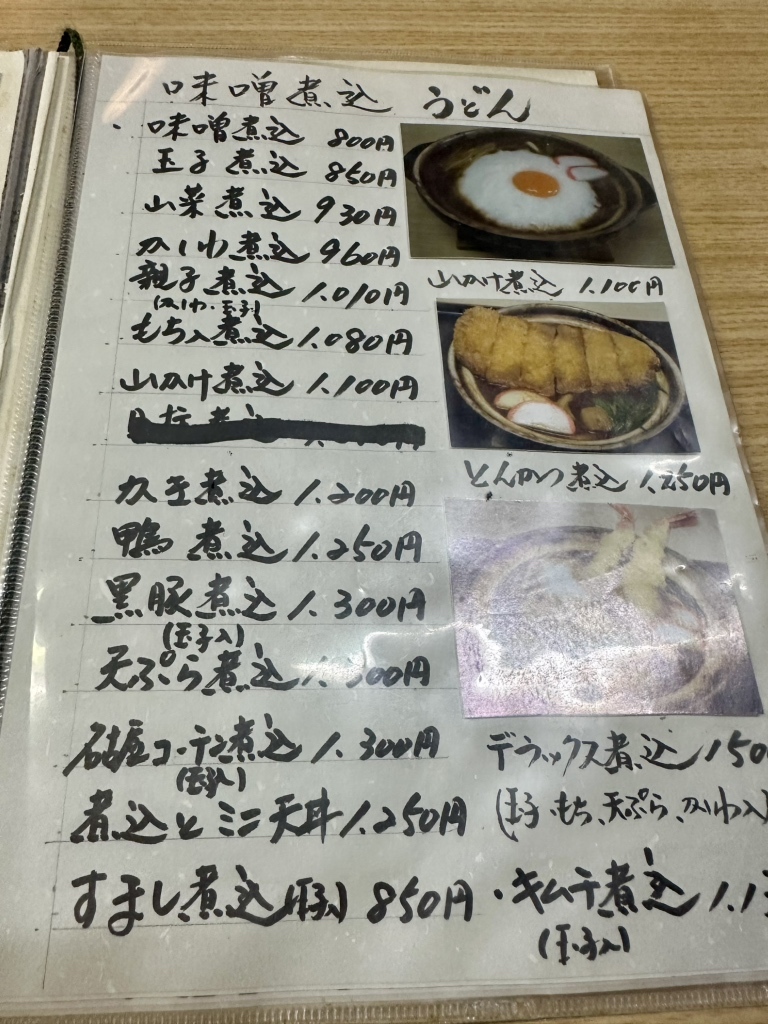 味噌煮込 うどん
・味噌煮込 800円
玉子煮込 850円
山菜煮込 930円
かしわ煮込 960円
親子煮込 1.010円
(かしわ・玉子)
もち入煮込 1.080円
山かけ煮込 1.100円
カキ玉煮込 1.200円
鴨煮込 1.250円
黒豚煮込 1.300円
(玉子入)
天ぷら煮込
名古屋コーチン煮込 1.300円
(玉子入)
煮込とミニ天丼 1.250円
すまし煮込(豚) 850円
山かけ煮込 1.100円
とんかつ煮込 1.250円
デラックス煮込 150
(玉子、もち、天ぷら、かしわ入)
・キムチ煮込 1.1
(玉子入)